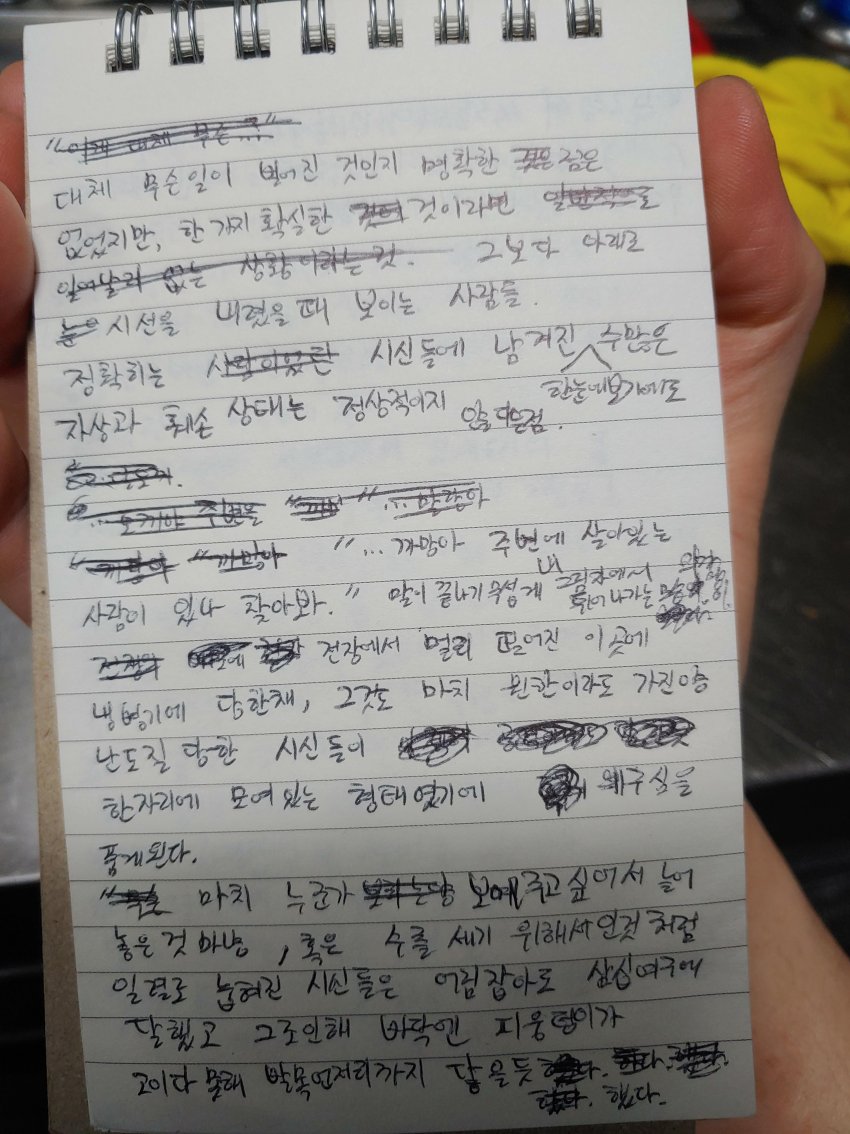 "이게 대체 무슨...?"
대체 무슨일이 벌어진 것인지 명확한 점은
없었지만, 한가지 확실한 것이라면 일반적으로
일어날리 없는 상황이라는 것. 그보다 아래로
시선을 내렸을때 보이는 사람들.
정확히는 사람이었던 시신들에 남겨진 수많은
한눈에보기에도
자상과 훼손 상태는 정상적이지 않다는점.
"...까망아 주변에 살아있는
사람이 있나 찾아봐." 말이 끝나기 무섭게 내 그림자에서
튀어나가는
전장에서 멀리 떨어진 이곳에
냉병기에 당한채, 그것도 마치 원한이라도 가진양
난도질 당한 시신들이
한자리에 모여있는 형태였기에 의구심을
품게된다.
마치 누군가 보여주고싶어서 늘어
놓은것 마냥, 혹은 수를 세기 위해서인것처럼
일렬로 눕혀진 시신들은 어림잡아도 삼십여구에
달했고 그로인해 바닥엔 피웅덩이가
고이다 못해 발목언저리까지 닿을듯 했다.